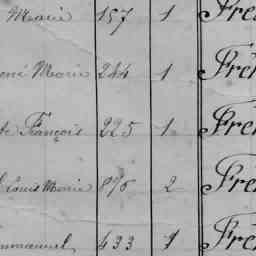 Marie 157 1 Fré
ené Marie 244 1 Fré
te François 225 1 Fré
Louis Marie 876 2 Fré
mmanuel 433 1 Fré